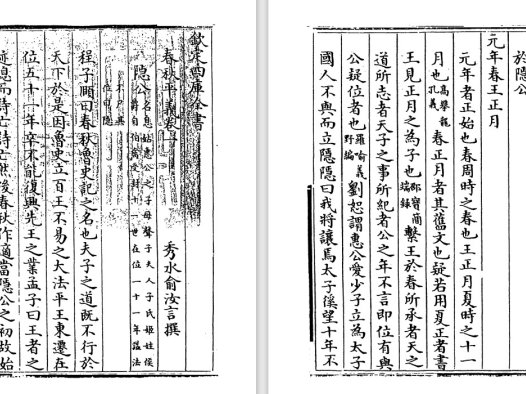 欽定四庫全書
春秋平義卷一
秀水俞汝言撰
隱公名息姑惠公之子母聲子夫人子氏姬姓侯爵自伯禽受封十三世在位一十一年諡法
不尸其位曰隱
程子頤曰春秋魯史記之名也夫子之道既不行於
天下於是因魯史立百王不易之大法平王東遷在
位五十一年卒不能復興先王之業孟子曰王者之
迹熄而詩亡詩亡然後春秋作適當隱公之初故始
於隱公
元年春王正月
元年者正始也春周時之春也王正月夏時之十一
月也高攀龍孔義春正月者其舊文也疑若用夏正者書
王見正月之為子也邵寶簡端録繫王於春所承者天之
道所志者天子之事所紀者公之年不言即位有與
公疑位者也羅喻義野編劉恕謂惠公愛少子立為太子
國人不與而立隱隱曰我將讓焉太子傒望十年不